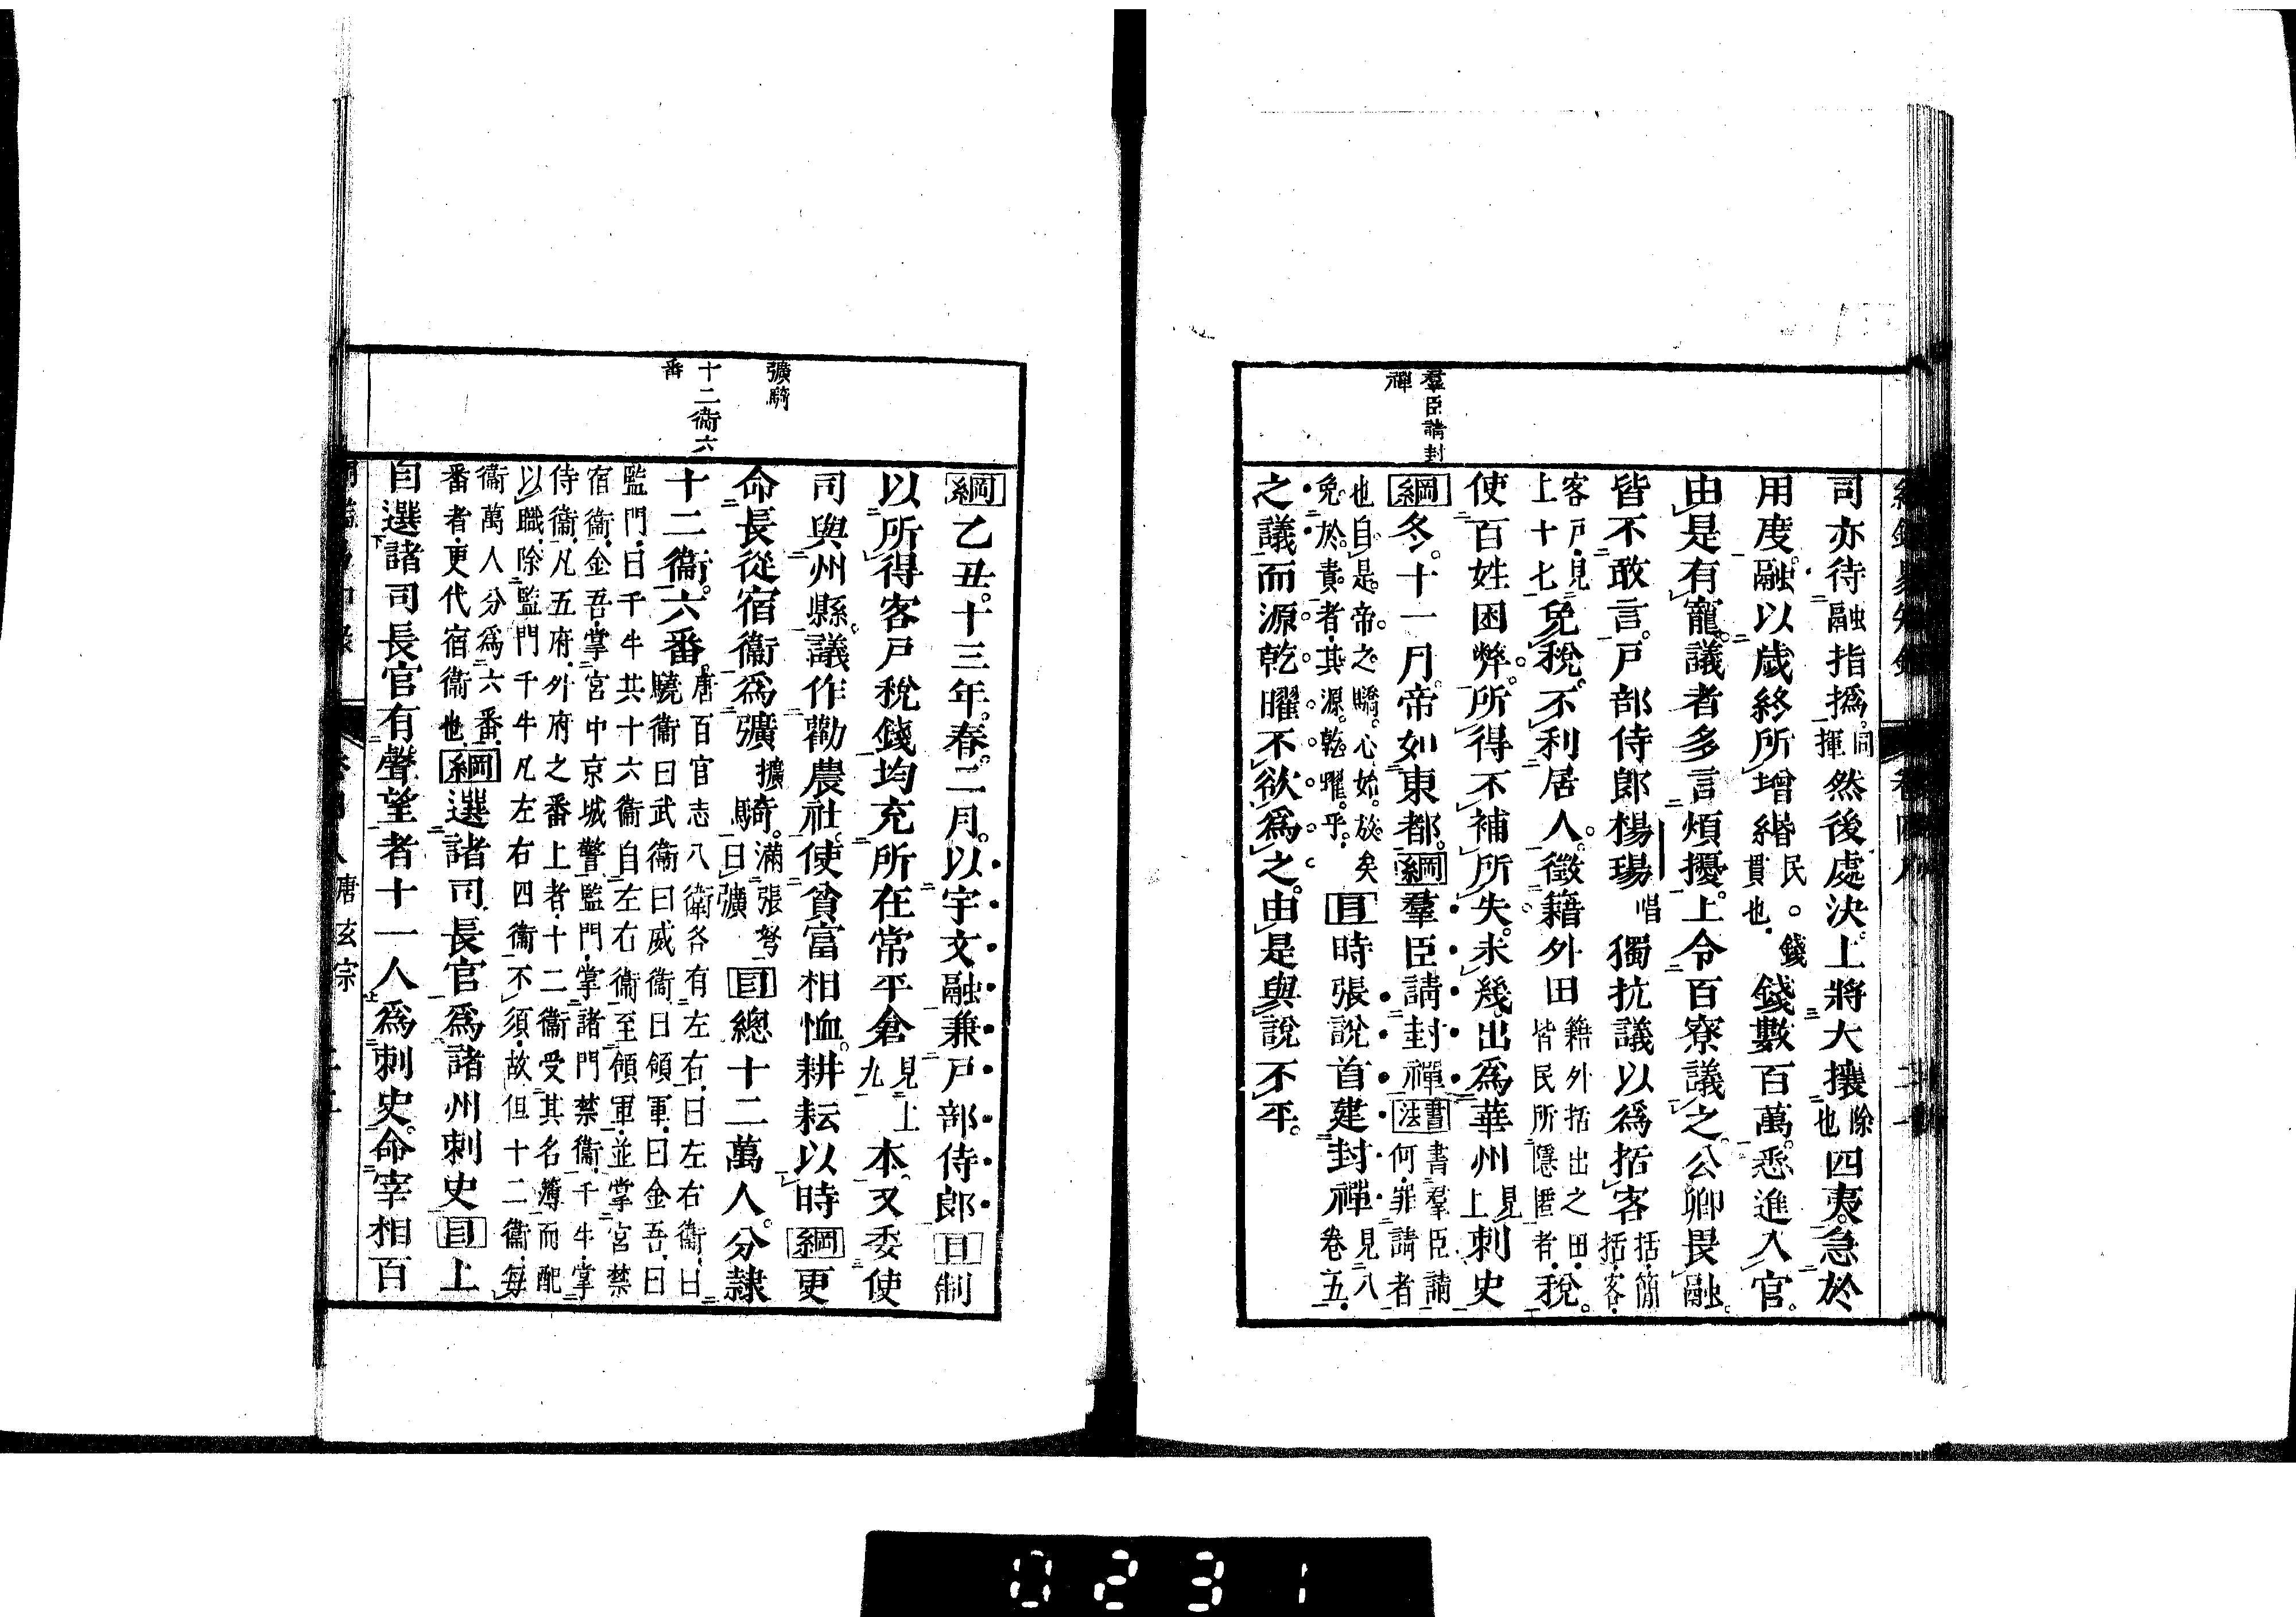 羣臣請封
禪
司亦待融指撝同揮然後處決上將大攘除也四夷急於
用度融以歲終所增緡民貫也錢錢數百萬悉進入官
由是有寵議者多言煩擾上令百寮議之公卿畏融
皆不敢言戶部侍郎楊瑒唱獨抗議以爲括客括簡括客
客戶見上十七免稅不利居人徵籍外田籍外括出之田皆民所隱匿者稅
使百姓困弊所得不補所失未幾出爲華州見上刺史
綱冬十一月帝如東都綱羣臣請封禪書法書羣臣請何罪請者
也自是帝之驕心始放矣免於責者其源乾曜乎目時張說首建封禪見八卷五
之議而源乾曜不欲爲之由是與說不平
彍騎
十二衞六
番
綱乙丑十三年春二月以宇文融兼戶部侍郎目制
以所得客戶稅錢均充所在常平倉見上九本又委使
司與州縣議作勸農社使貧富相恤耕耘以時綱更
命長從宿衞爲彍擴騎滿張弩曰彍目總十二萬人分隸
十二衞六番唐百官志八衞各有左右曰左右衞曰驍衞曰武衞曰威衞曰領軍曰金吾曰
監門曰千牛共十六衞自左右衞至領軍並掌宮禁
宿衞金吾掌宮中京城警監門掌諸門禁衞千牛掌
侍衞凡五府外府之番上者十二衞受其名簿而配
以職除監門千牛凡左右四衞不須故但十二衞每
衞萬人分爲六番番者更代宿衞也綱選諸司長官爲諸州刺史目上
自選諸司長官有聲望者十一人爲刺史命宰相百
唐玄宗
0231